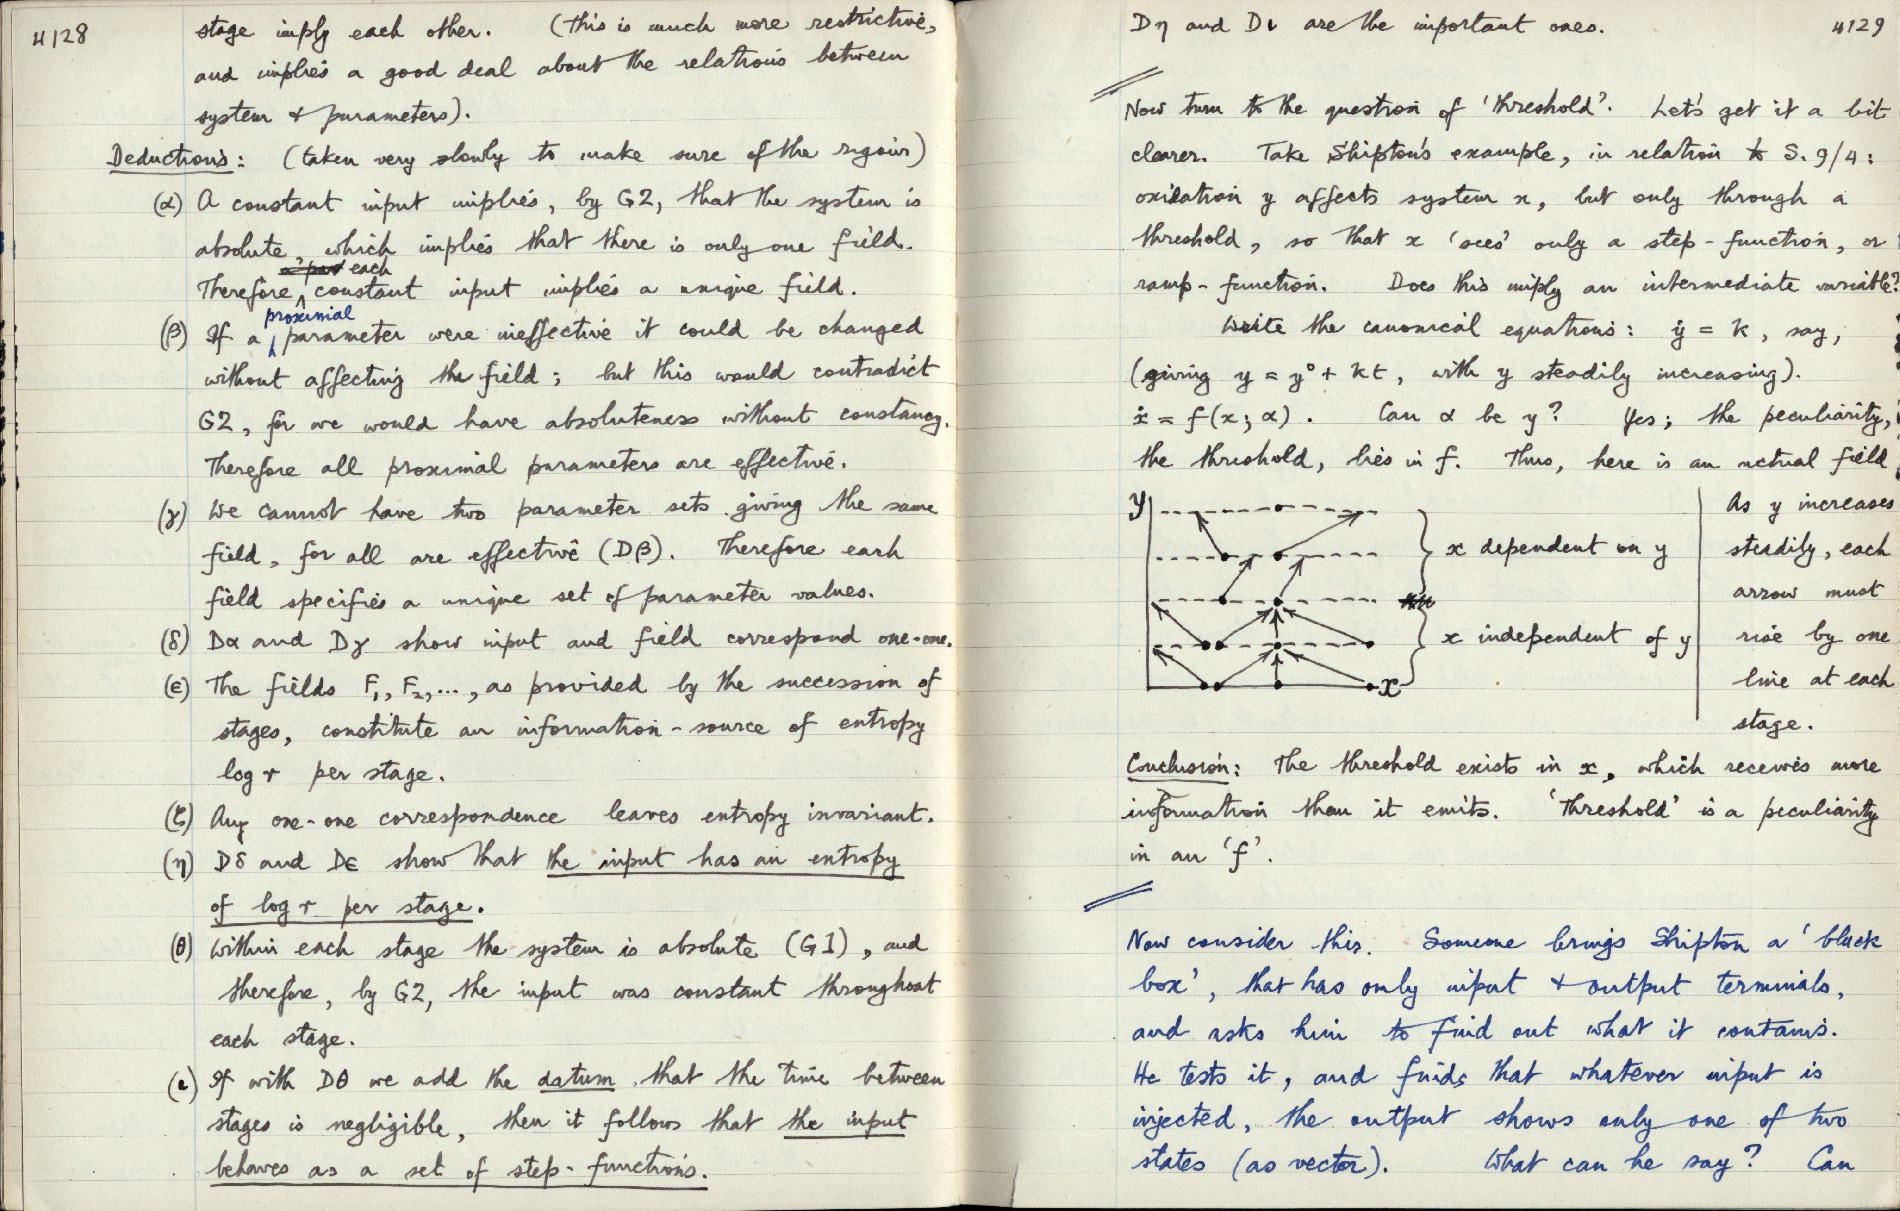 4128
stage imply each other. (This is much more restrictive,
and implies a good deal about the relations between
system & parameters).
Deductions: (taken very slowly to make sure of the rigour)
(α) A constant input implies, by G2, that the system is
absolute, which implies that there is only one field.
each
Therefore, constant input implies a unique field.
proximal
(β) If a parameter were ineffective it could be changed
without affecting the field; but this would contradict
G2, for we would have absoluteness without constancy.
Therefore all proximal parameters are effective.
(γ) We cannot have two parameter sets giving the same
field, for all are effective (Dβ). Therefore each
field specifies a unique set of parameter values.
(δ) Dα and Dγ show input and field correspond one-one.
(ε) The fields F₁, F₂, ..., as provided by the succession of
stages, constitute an information-source of entropy
log r per stage.
(ζ) Any one-one correspondence leaves entropy invariant.
(η) Dδ and Dε show that the input has an entropy
of log r per stage.
(θ) Within each stage the system is absolute (G1), and
therefore, by G2, the input was constant throughout
each stage.
(ι) If with Dθ we add the datum that the time between
stages is negligible, then it follows that the input
behaves as a set of step-functions.
4129
Dη and Dι are the important ones.
Now turn to the question of 'threshold'. Let's get it a bit
clearer. Take Shipton's example, in relation to S. 9/4:
oxidation y affects system x, but only through a
threshold, so that x 'sees' only a step-function, or
ramp-function. Does this imply an intermediate variable?
Write the canonical equations: ẏ = k, say,
(giving y = y⁰ + kt, with y steadily increasing).
ẋ = f(x; α). Can α be y? Yes; the peculiarity,
the threshold, lies in f. Thus, here is an actual field
y
x dependent on y
x independent of y
x
As y increases
steadily, each
arrow must
rise by one
line at each
stage.
Conclusion: The threshold exists in x, which receives more
information than it emits. 'Threshold' is a peculiarity
in an 'f'.
Now consider this. Someone brings Shipton a 'black
box', that has only input & output terminals,
and asks him to find out what it contains.
He tests it, and finds that whatever input is
injected, the output shows only one of two
states (as vector). What can he say? Can